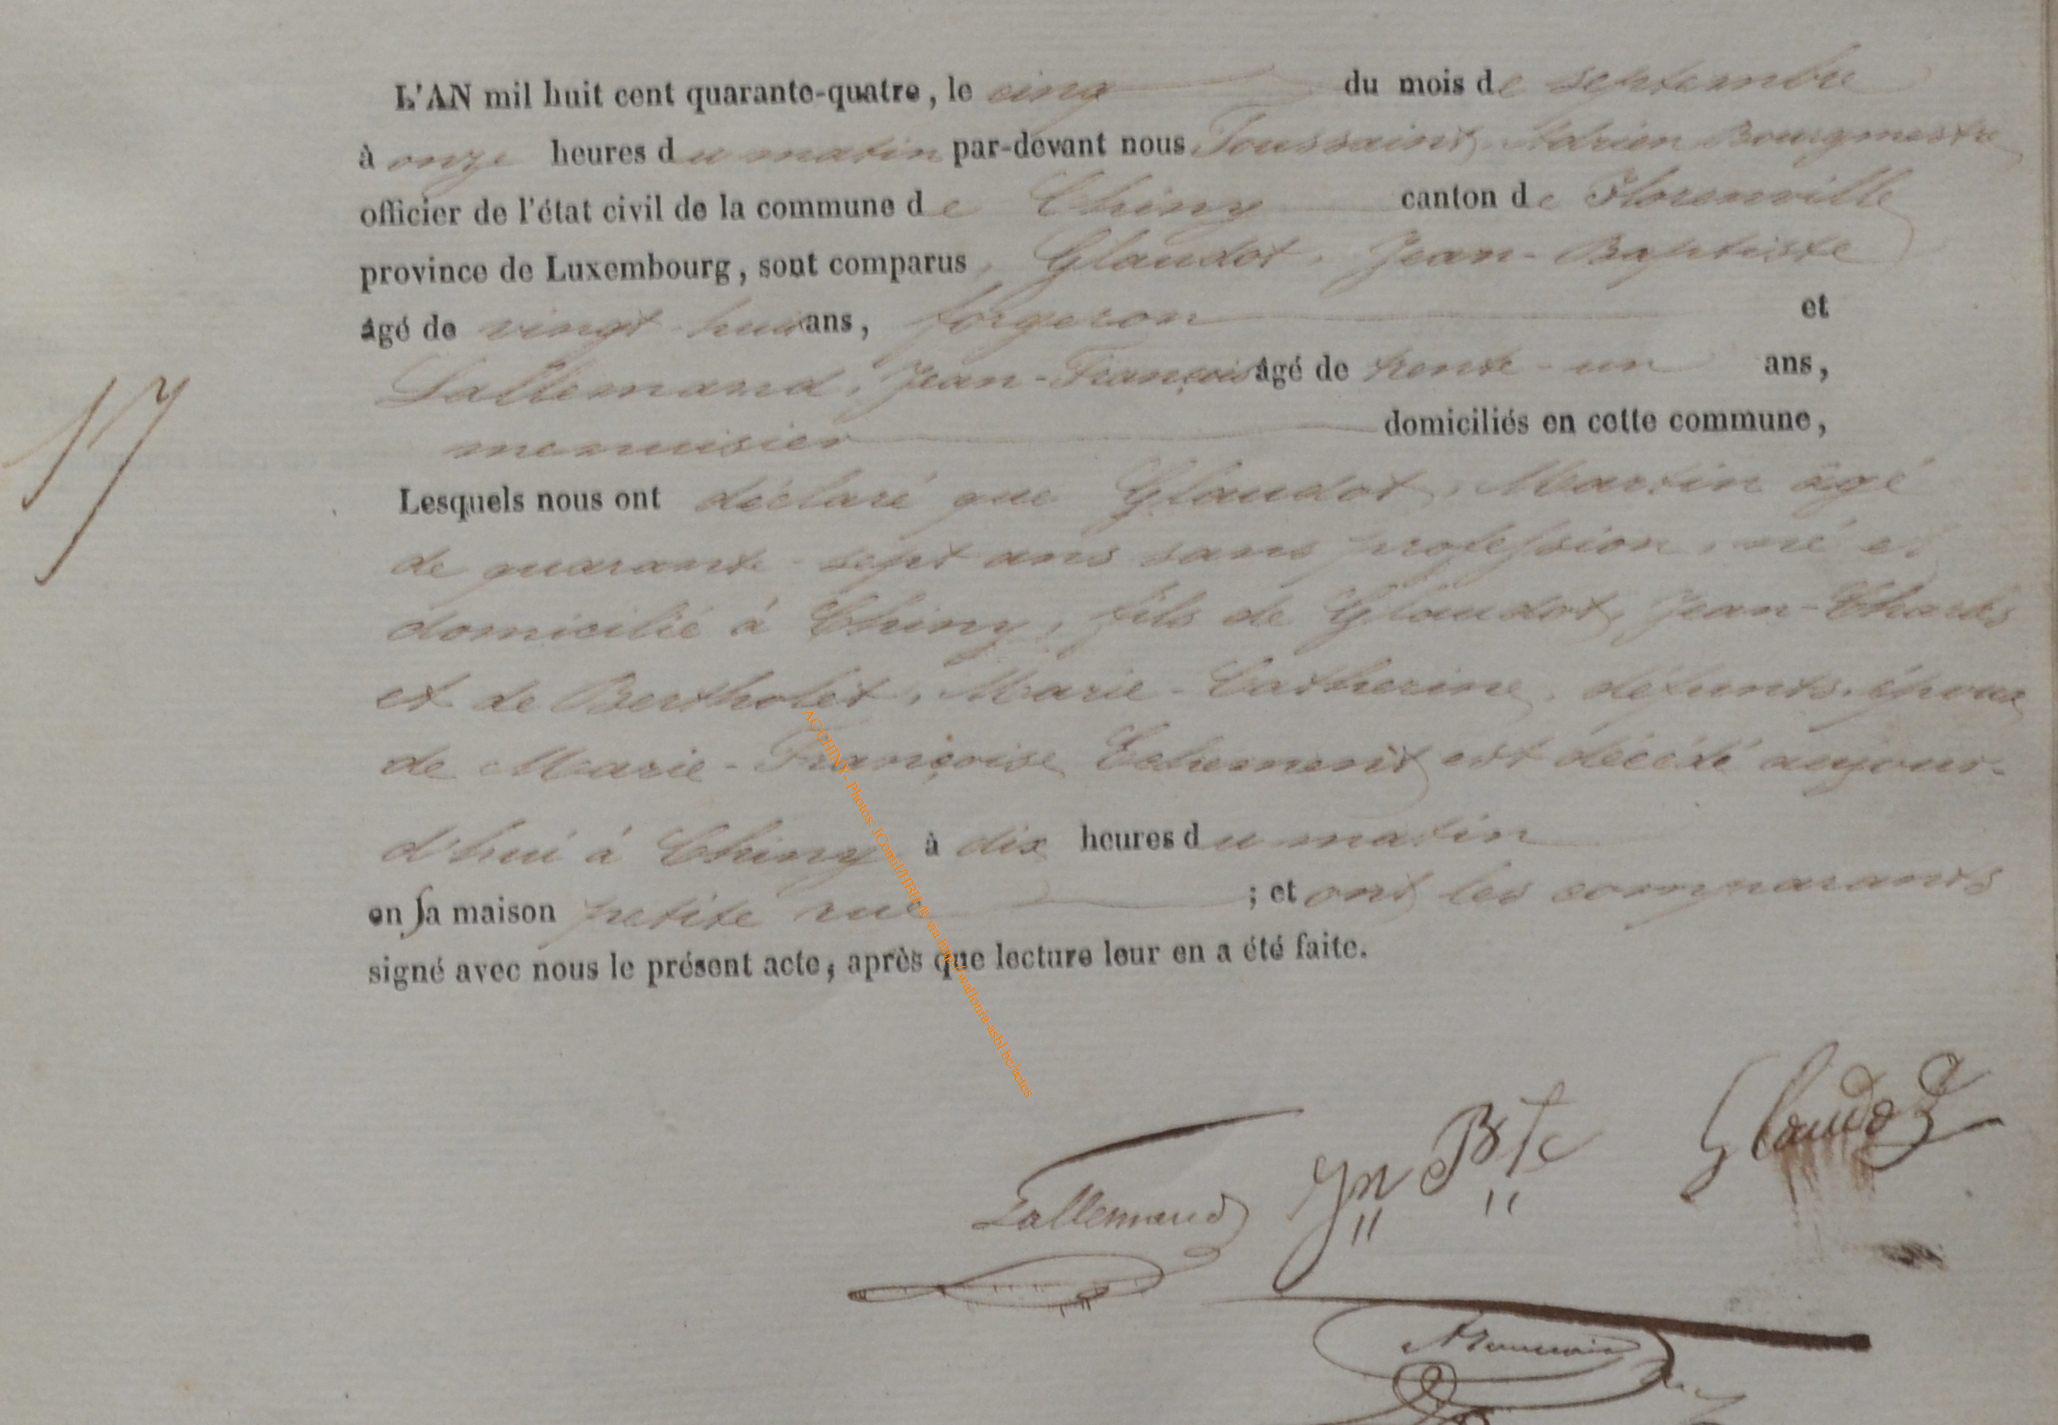 L'AN mil huit cent quarante-quatre, le cinq du mois de septembre
à onze heures du matin par-devant nous Toussaint, Adrien Bourgmestre
officier de l'état civil de la commune de Chiny canton de Florenville
province de Luxembourg, sont comparus, Glaudot, Jean-Baptiste
âgé de vingt-huit ans, forgeron et
Lallemand, Jean-François âgé de trente-un ans,
menuisier domiciliés en cette commune,
17
Lesquels nous ont déclaré que Glaudot, Martin âgé
de quarante-sept ans sans profession, né et
domicilié à Chiny, fils de Glaudot, Jean-Charles
et de Bertholet, Marie-Catherine, défunts, époux
de Marie-Françoise est décédé aujour-
d'hui à Chiny à dix heures du matin
en sa maison petite rue ; et ont les comparants
signé avec nous le présent acte, après que lecture leur en a été faite.
AC CHINY - Photos:
Lallemand Jn Bte Glaudot
AToussaint